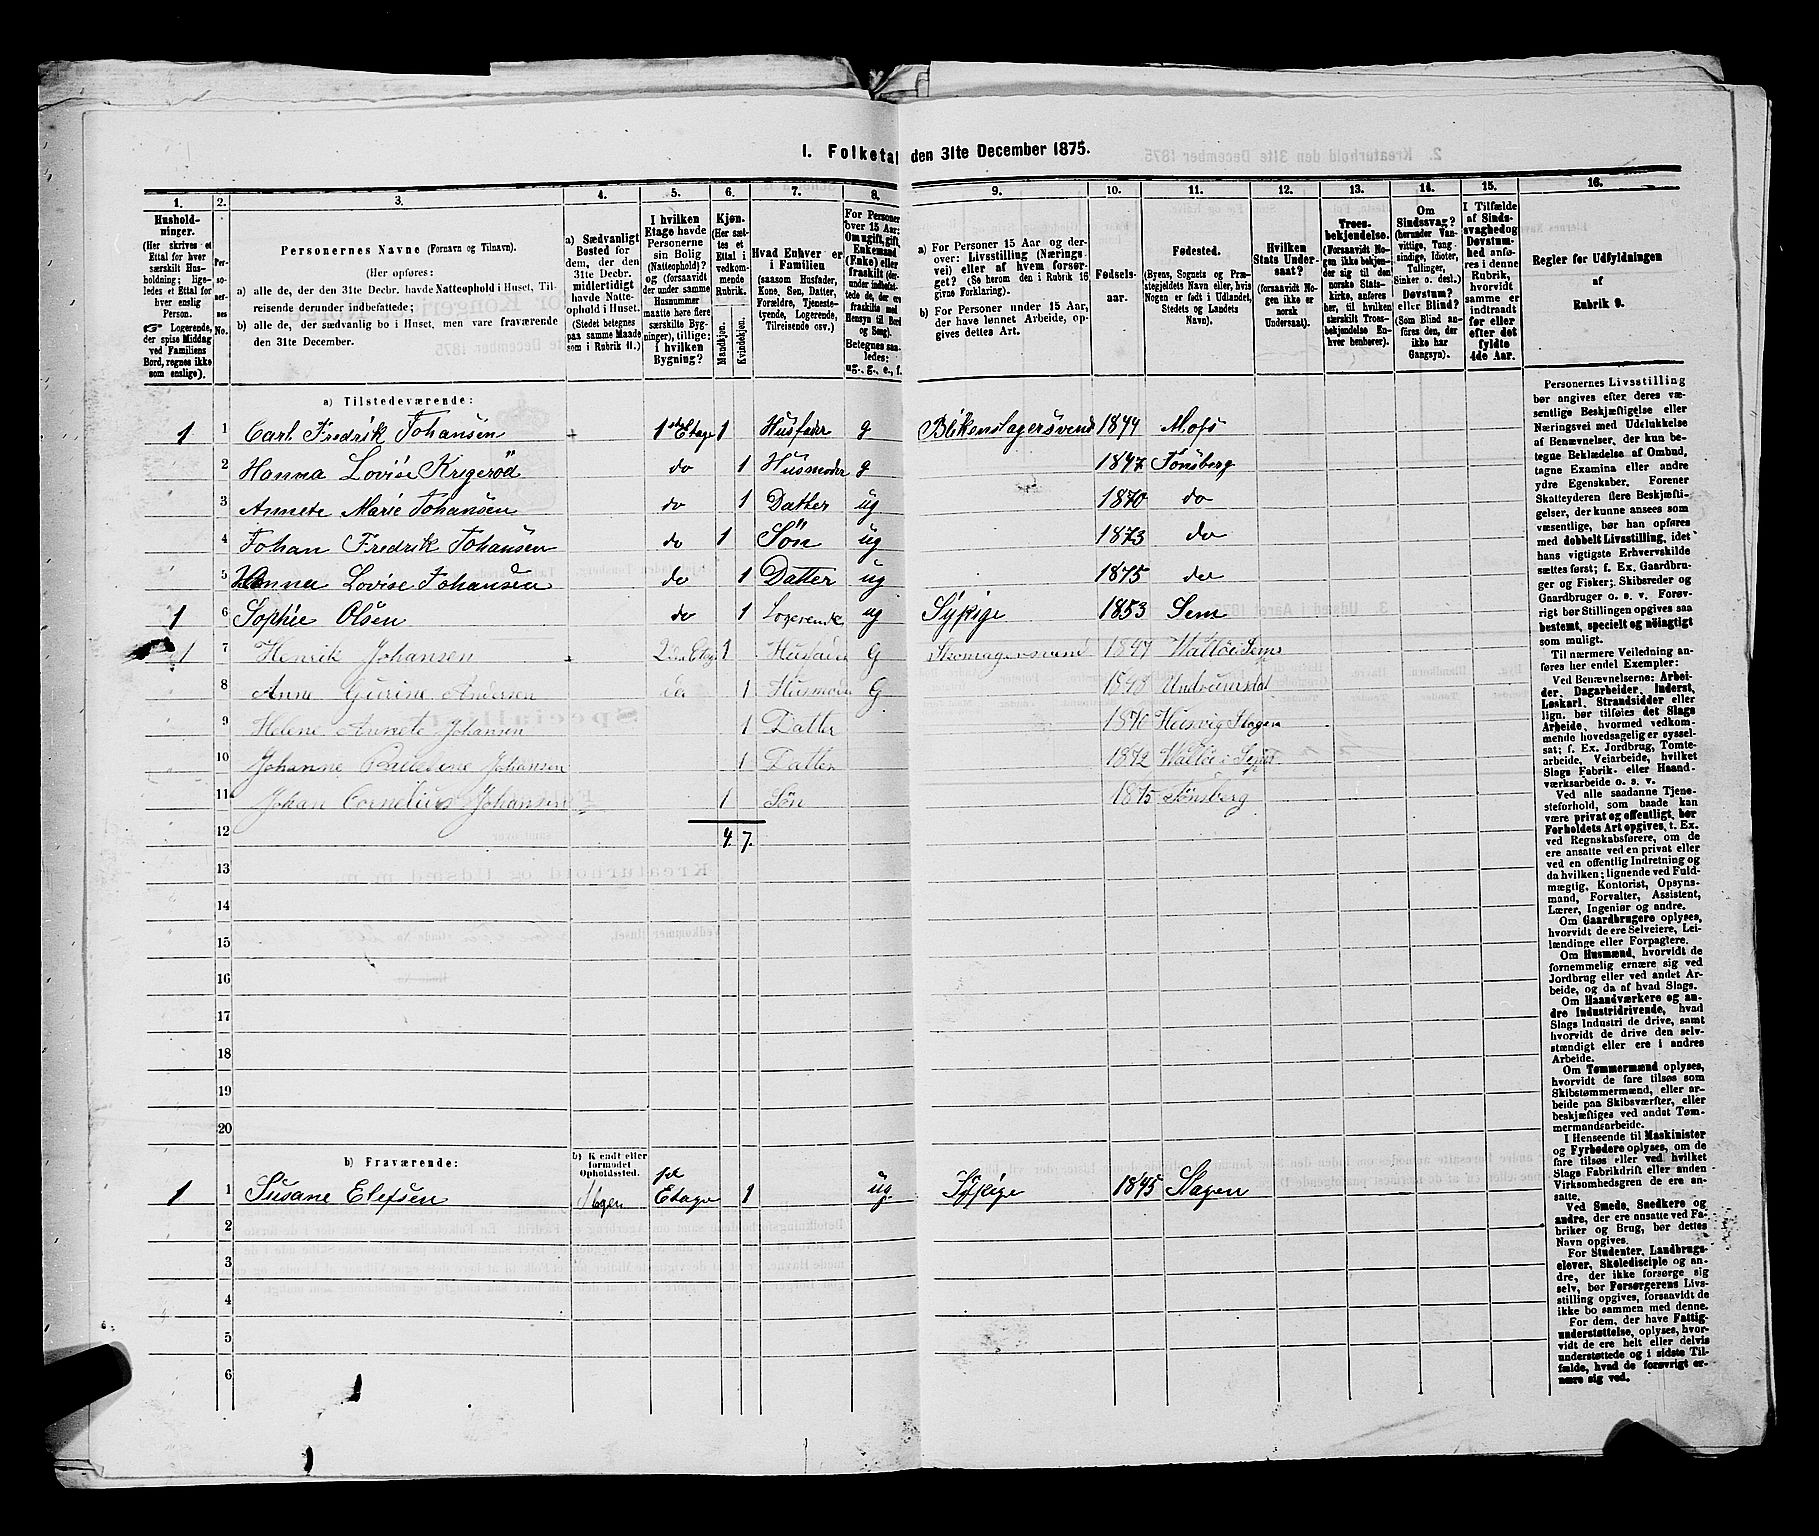 1. Folketal den 31te December 1875.
1. 2. 3. 4. 5. 6. 7. 8. 9. 10. 11. 12. 13. 14. 15. 16.
Hushold-
ninger.
(Her skrives et
Ettal for hver
særskilt Hus-
holdning; lige-
ledes et Ettal for
hver enslig
Person.
☞ Logerende,
der spise Middag
ved Familiens
Bord, regnes ikke
som enslige).
Per-
so-
ner-
nes
No.
Personernes Navne (Fornavn og Tilnavn).
(Her opføres:
a) alle de, der den 31te Decbr. havde Natteophold i Huset, Til-
reisende derunder indbefattede;
b) alle de, der sædvanlig bo i Huset, men vare fraværende
den 31te December.
a) Sædvanligt
Bosted for
dem, der den
31te Decbr.
midlertidigt
havde Natte-
ophold i Huset.
(Stedet betegnes
paa samme Maade
som i Rubrik 11.)
I hvilken
Etage havde
Personerne
sin Bolig
(Natteophold)?
og (forsaavidt
der under samme
Husnummer
maatte høre flere
særskilte Byg-
ninger), tillige:
i hvilken
Bygning?
Kjøn.
(Her sæt-
tes et
Ettal i
vedkom-
mende
Rubrik.
Mandkjøn.
Kvindekjøn.
Hvad Enhver er
i Familien
(saasom Husfader,
Kone, Søn, Datter,
Forældre, Tjeneste-
tyende, Logerende,
Tilreisende osv.)
For Personer
over 15 Aar:
Om ugift, gift,
Enkemand
(Enke) eller
fraskilt (der-
under indbefat-
tede de, der ere
fraskilte med
Hensyn til Bord
og Seng).
Betegnes saa-
ledes:
ug., g., e., f.
a) For Personer 15 Aar og der-
over: Livsstilling (Nærings-
vei) eller af hvem forsør-
get. (Se herom den i Rubrik 16
givne Forklaring).
b) For Personer under 15 Aar,
der have lønnet Arbeide, op-
gives dettes Art.
Fødsels-
aar.
Fødested.
(Byens, Sognets og Præ-
stegjeldets Navn eller, hvis
Nogen er født i Udlandet,
Stedets og Landets
Navn).
Hvilken
Stats Under-
saat?
(forsaavidt No-
gen ikke er
norsk
Undersaat).
Troes-
bekjendelse.
(Forsaavidt No-
gen ikke bekjen-
der sig til den
norske Stats-
kirke, anføres
her, til hvilken
særskilt Troes-
bekjendelse En-
hver henhører).
Om
Sindssvag?
(herunder Van-
vittige, Tung-
sindige, Idioter,
Tullinger,
Sinker o. desl.)
Døvstum?
eller Blind?
(Som Blind an-
føres den, der
ikke har
Gangsyn).
I Tilfælde
af Sinds-
svaghed og
Døvstum-
hed anfø-
res i denne
Rubrik,
hvorvidt
samme er
indtraadt
før eller
efter det
fyldte
4de Aar.
Regler for Udfyldningen
af
Rubrik 9.
a) Tilstedeværende:
1 1 Carl Fredrik Johansen 1ste Etage 1 Husfader g Blikenslagersvend 1844 Mofs
2 Hanna Lovise Krygeröd do 1 Husmoder g 1847 Tønsberg
3 Annete Marie Johansen do 1 Datter ug 1870 do
4 Johan Fredrik Johansen do 1 Sön ug 1873 do
5 Hanna Lovise Johansen do 1 Datter ug 1875 do
1 6 Sophie Olsen do 1 Logerende ug Sypige 1853 Sem
1 7 Henrik Johansen 2den Etag 1 Husfader G Skomagersvend 1847 Valløe i Sem
8 Anne Gurine Andersen do 1 Husmoder G 1848 Undrumsdal
9 Helene Annete Johansen 1 Datter 1870 Slagen
10 Johanne Johansen 1 Datter 1872 Valløe i Sem
11 Johan Cornelius Johansen 1 Søn 1875 Tønsberg
12 4. 7.
13
14
15
16
17
18
19
20
b) Fraværende:
b) Kjendt eller
formodet
Opholdssted.
1 1 Susane Elefsen Slagen 1ste Etage 1 ug Sypige 1845 Slagen
2
3
4
5
6
Personernes Livsstilling
bør angives efter deres væ-
sentlige Beskjæftigelse eller
Næringsvei med Udelukkelse
af Benævnelser, der kun be-
tegne Beklædelse af Ombud,
tagne Examina eller andre
ydre Egenskaber. Forener
Skatteyderen flere Beskjæfti-
gelser, der kunne ansees som
væsentlige, bør han opføres
med dobbelt Livsstilling, idet
hans vigtigste Erhvervskilde
sættes først; f. Ex. Gaardbru-
ger og Fisker; Skibsreder og
Gaardbruger o. s. v. Forøv-
rigt bør Stillingen opgives saa
bestemt, specielt og nöiagtigt
som muligt.
Til nærmere Veiledning an-
føres her endel Exempler:
Ved Benævnelserne: Arbei-
der, Dagarbeider, Inderst,
Løskarl, Strandsidder eller
lign. bør tilføies det Slags
Arbeide, hvormed vedkom-
mende hovedsagelig er syssel-
sat; f. Ex. Jordbrug, Tomte-
arbeide, Veiarbeide, hvilket
Slags Fabrik- eller Haand-
værksarbeide o. s. v.
Ved alle saadanne Tjene-
steforhold, som baade kan
være privat og offentligt, bør
Forholdets Art opgives, t. Ex.
ved Regnskabsførere, om de
ere ansatte ved en privat eller
ved en offentlig Indretning og
da hvilken; lignende ved Fuld-
mægtig, Kontorist, Opsyns-
mand, Forvalter, Assistent,
Lærer, Ingeniør og andre.
Om Gaardbrugere oplyses,
hvorvidt de ere Selveiere, Lei-
lændinge eller Forpagtere.
Om Husmænd, hvorvidt de
fornemmelig ernære sig ved
Jordbrug eller ved andet Ar-
beide, og da af hvad Slags.
Om Haandværkere og an-
dre Industridrivende, hvad
Slags Industri de drive, samt
hvorvidt de drive den selv-
stændigt eller ere i andres
Arbeide.
Om Tømmermænd oplyses,
hvorvidt de fare tilsøs som
Skibstømmermænd, eller ar-
beide paa Skibsværfter, eller
beskjæftiges ved andet Tøm-
mermandsarbeide.
I Henseende til Maskinister
og Fyrbødere oplyses, om de
fare tilsøs eller ved hvilket
Slags Fabrikdrift eller anden
Virksomhedsgren de ere an-
satte.
Ved Smede, Snedkere og
andre, der ere ansatte ved Fa-
briker og Brug, bør dettes
Navn opgives.
For Studenter, Landbrugs-
elever, Skoledisciple og an-
dre, der ikke forsørge sig
selv, bør Forsørgerens Livs-
stilling opgives, forsaavidt de
ikke bo sammen med denne.
For dem, der have Fattig-
understøttelse, oplyses, hvor-
vidt de ere helt eller delvis
understøttede og i sidste Til-
fælde, hvad de forøvrigt er-
nære sig ved.